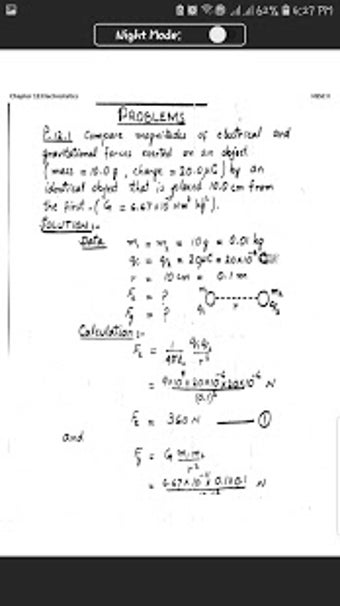 62% 6:27 PM
Night Mode:
Chapter 12 Electrostatics
PROBLEMS
P.12.1 Compare magnitudes of electrical and
gravitational forces exerted on an object
(mass = 10.0 g, charge = 20.0 μC) by an
identical object that is placed 10.0 cm from
the first. (G = 6.67×10⁻¹¹ Nm² kg⁻²).
SOLUTION:-
Data m₁ = m₂ = 10g = 0.01 kg
q₁ = q₂ = 20μC = 20×10⁻⁶ C
r = 10 cm = 0.1 m
Fe = ?
Fg = ?
m₁ m₂
q₁ r q₂
Calculation:-
Fe = 1/4πε₀ q₁q₂/r²
= 9×10⁹×20×10⁻⁶×20×10⁻⁶/(0.1)² N
Fe = 360 N ——— ①
and
Fg = G m₁m₂/r²
= 6.67×10⁻¹¹× N